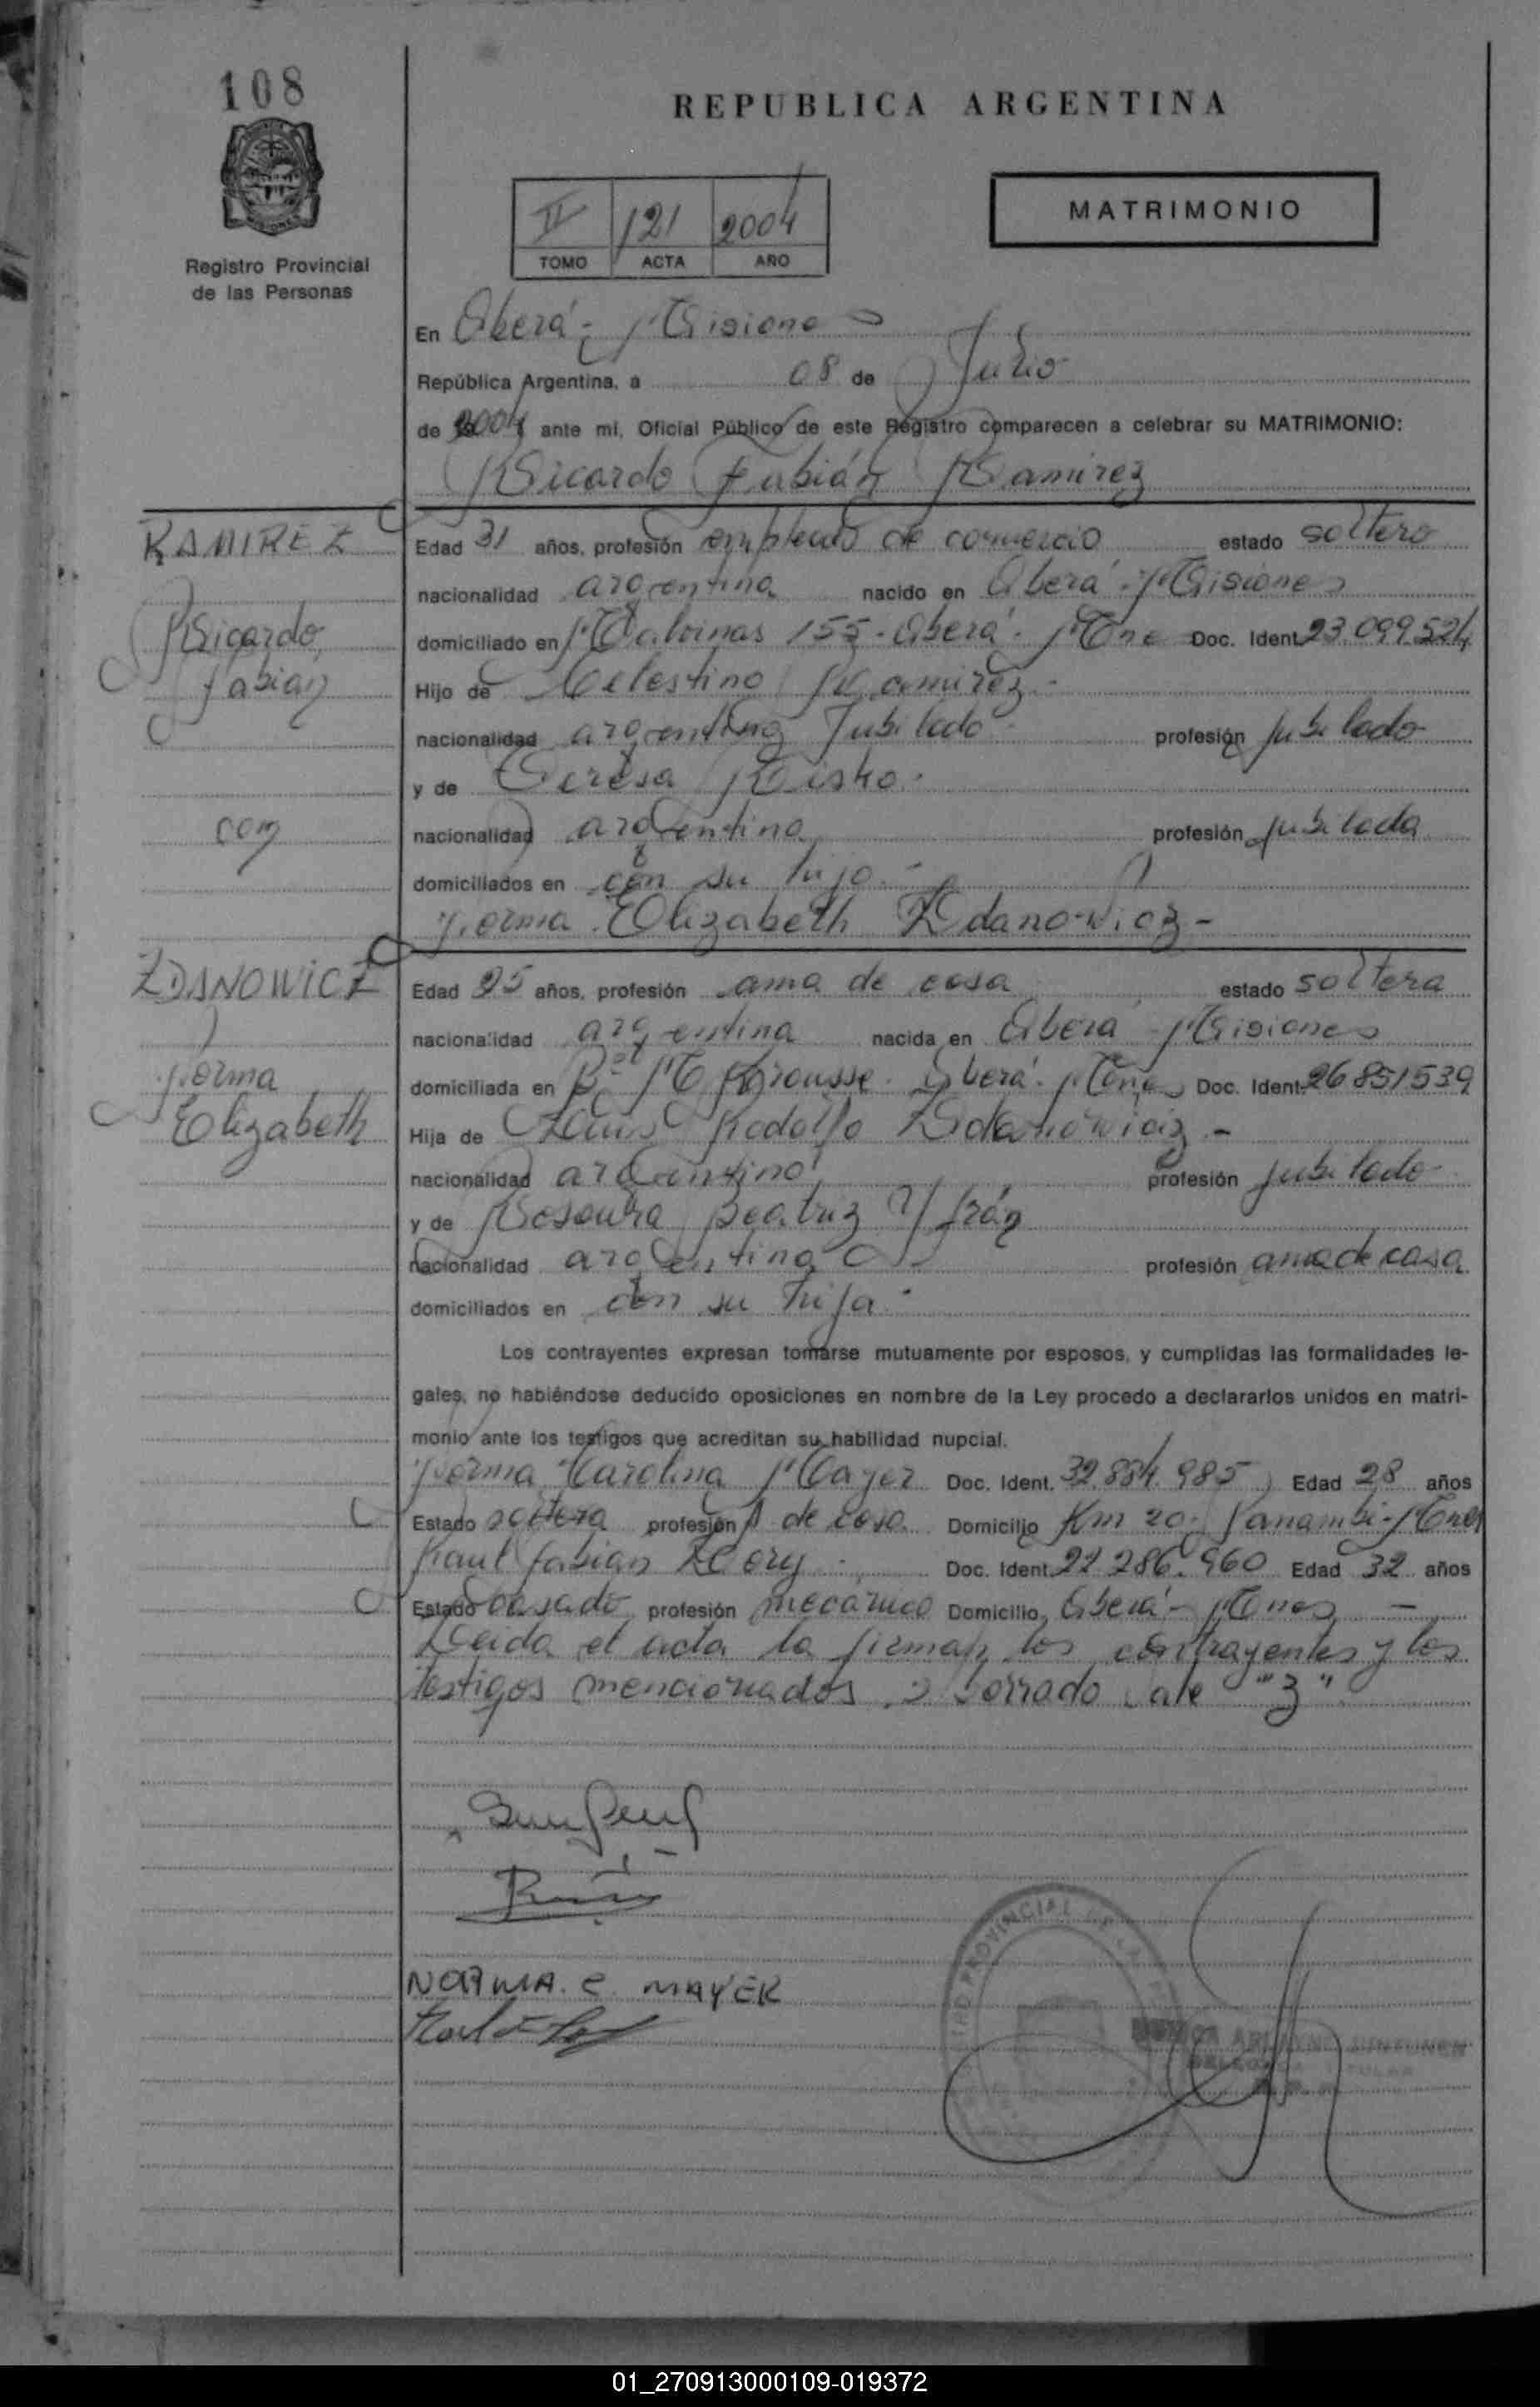 108
REPUBLICA ARGENTINA
II 121 2004
TOMO ACTA AÑO
MATRIMONIO
Registro Provincial
de las Personas
En Oberá - Misiones
República Argentina, a 08 de Julio
de 2004 ante mi, Oficial Público de este Registro comparecen a celebrar su MATRIMONIO:
Ricardo Fabián Ramirez
RAMIREZ
Edad 31 años, profesión empleado de comercio estado soltero
nacionalidad argentina nacido en Oberá - Misiones
Ricardo
domiciliado en Malvinas 155 - Oberá - Mnes Doc. Ident. 23.099.524
Fabian
Hijo de Celestino Ramirez -
nacionalidad argentina Jubilado profesión Jubilado
y de Teresa
con
nacionalidad argentina profesión Jubilada
domiciliados en con su hijo -
Norma Elizabeth Zdanowicz -
ZDANOWICZ
Edad 25 años, profesión ama de casa estado soltera
nacionalidad argentina nacida en Oberá - Misiones
Norma
domiciliada en Bº Oberá - Mnes Doc. Ident. 26851539
Elizabeth
Hija de Rodolfo Zdanowicz -
nacionalidad argentino profesión Jubilado
y de Beatriz Yfrán
nacionalidad argentina profesión ama de casa
domiciliados en con su hija -
Los contrayentes expresan tomarse mutuamente por esposos, y cumplidas las formalidades le-
gales, no habiéndose deducido oposiciones en nombre de la Ley procedo a declararlos unidos en matri-
monio ante los testigos que acreditan su habilidad nupcial.
Norma Carolina Mayer Doc. Ident. 32.884.985 Edad 28 años
Estado soltera profesión A de casa Domicilio Km 20 - Panambi - Mnes
Raul Fabian Doc. Ident. 22 286.960 Edad 32 años
Estado casado profesión mecánico Domicilio Oberá - Mnes -
Leida el acta la firman los contrayentes y los
testigos mencionados borrado vale "z"
NORMA. C. MAYER
01_270913000109-019372